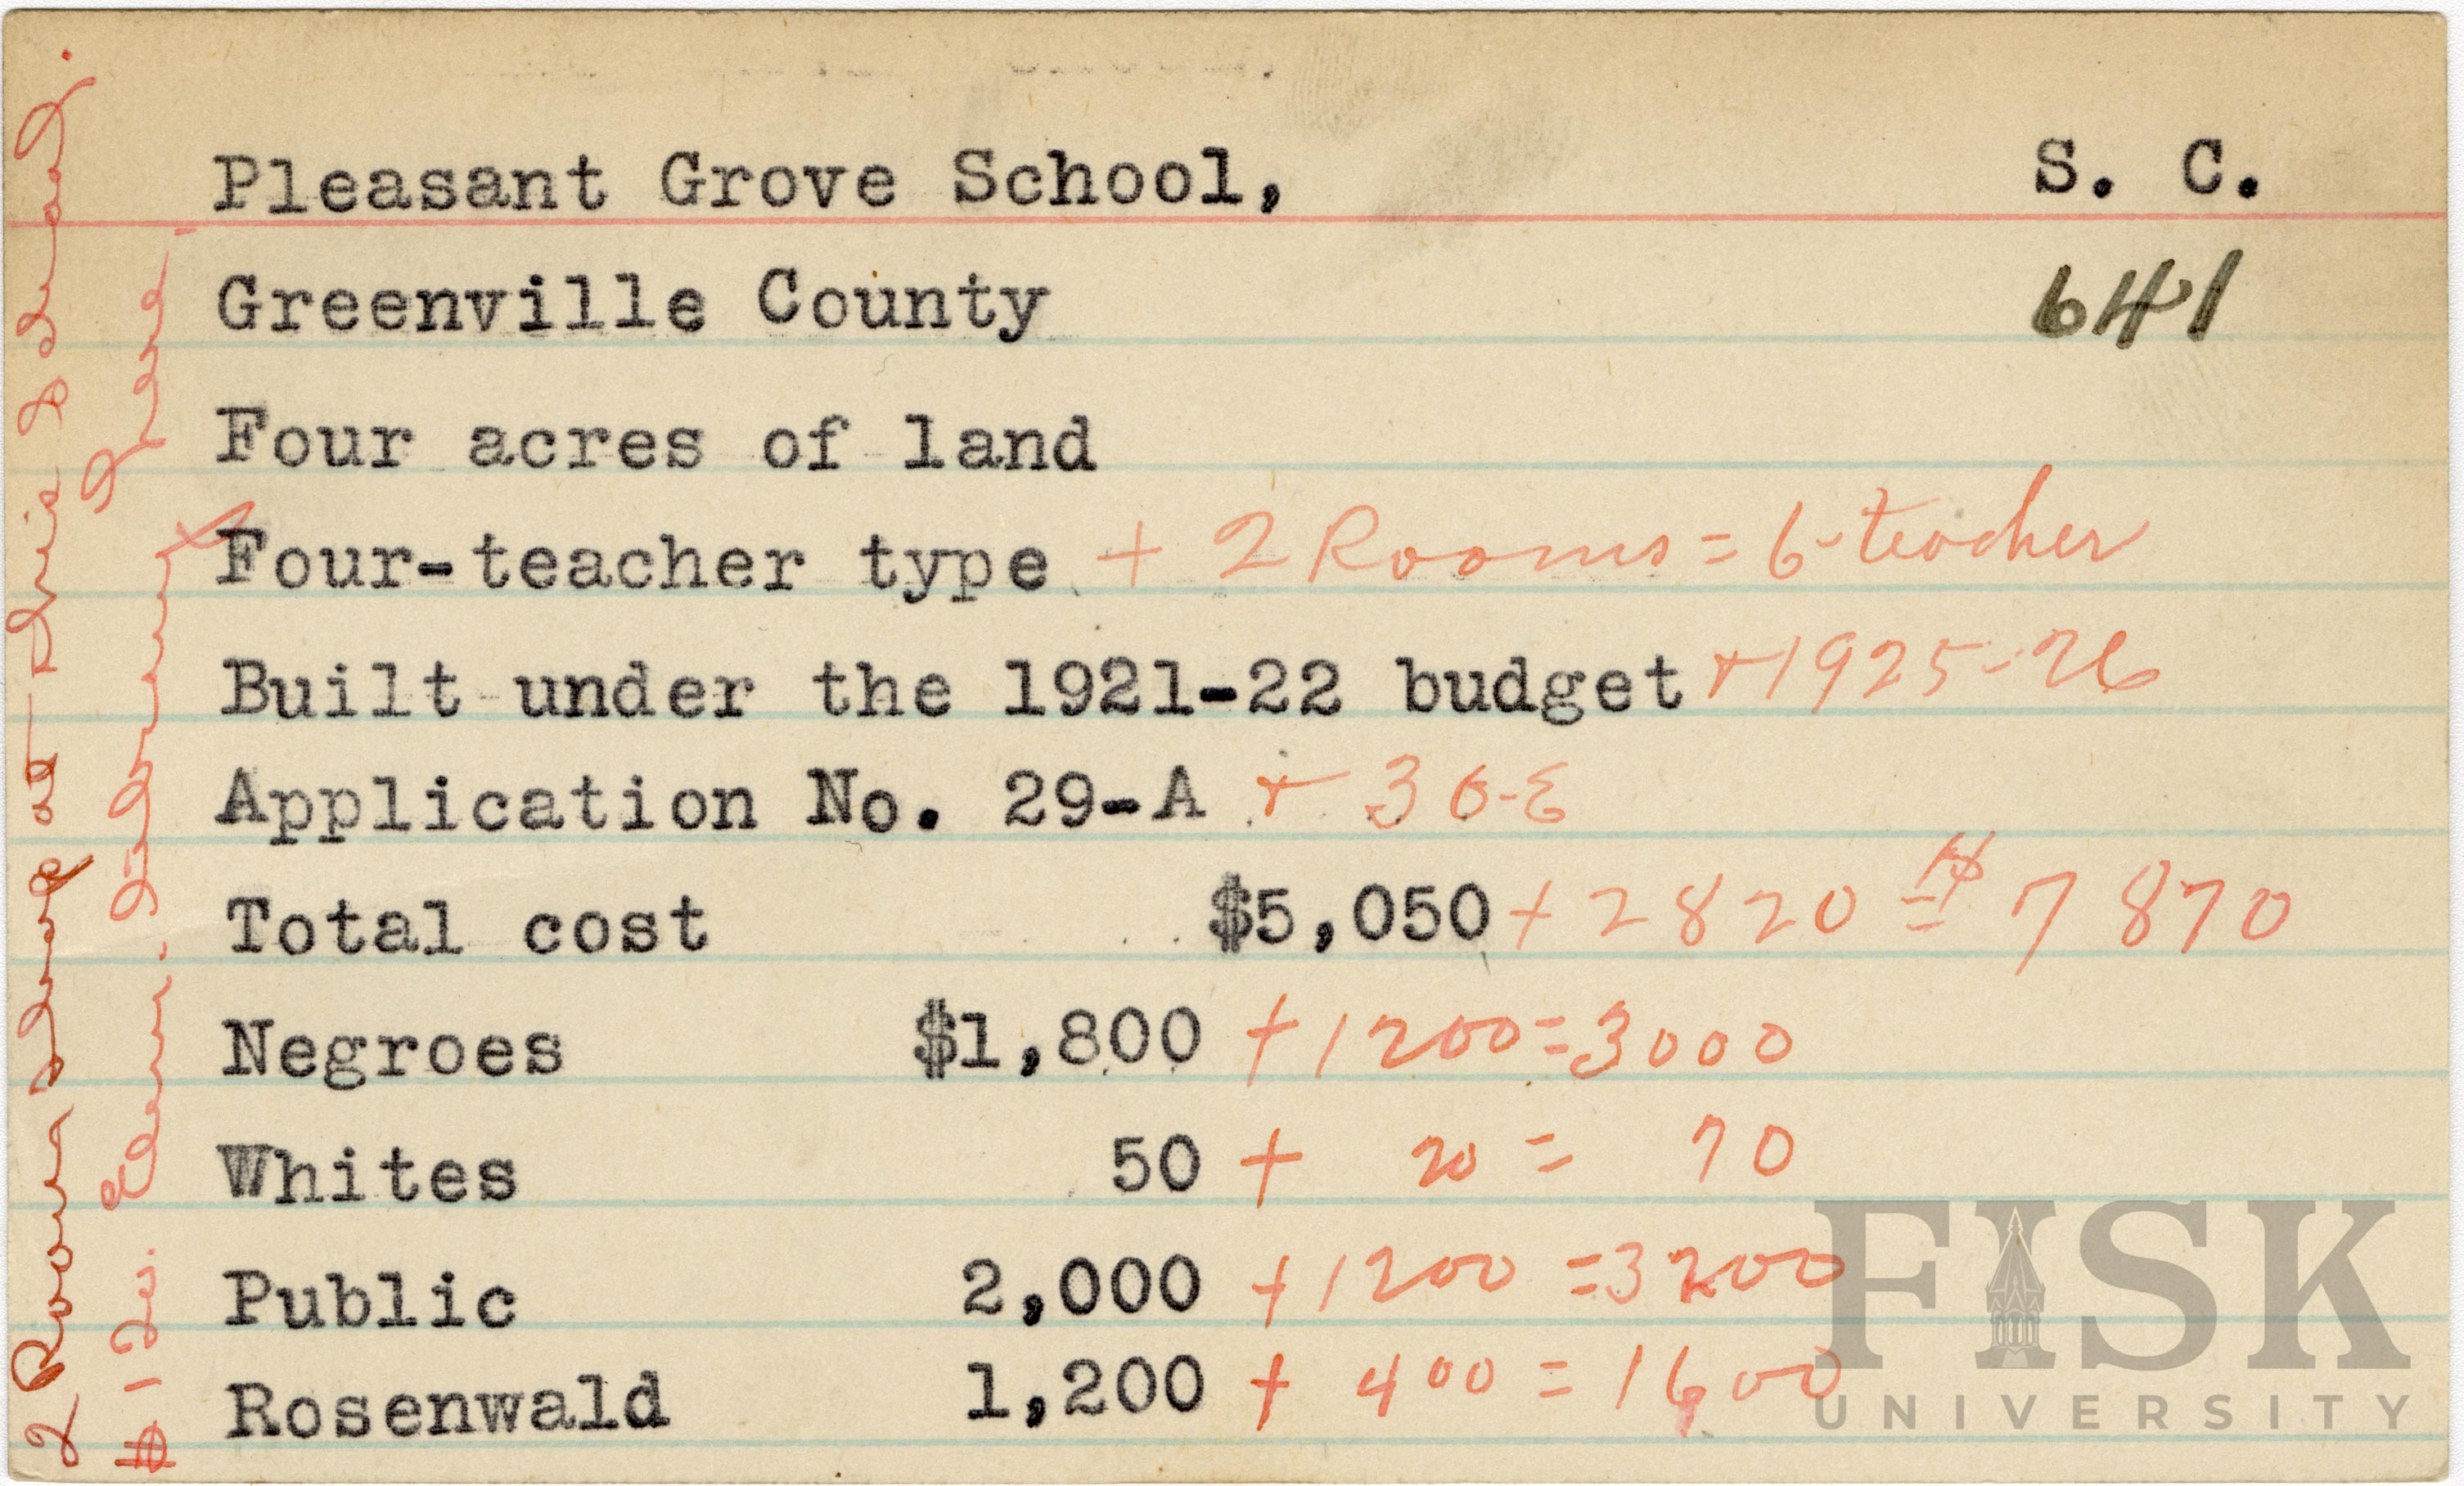 Pleasant Grove School, S. C.
Greenville County 641
Four acres of land
Four-teacher type + 2 Rooms = 6-teacher
Built under the 1921-22 budget + 1925-26
Application No. 29-A + 36-E
Total cost $5,050 + 2820 = 7870
Negroes $1,800 + 1200 = 3000
Whites 50 + 20 = 70
Public 2,000 + 1200 = 3200
Rosenwald 1,200 + 400 = 1600
2 Room Shop at this School.
Elem. Library Here.
FISK
UNIVERSITY